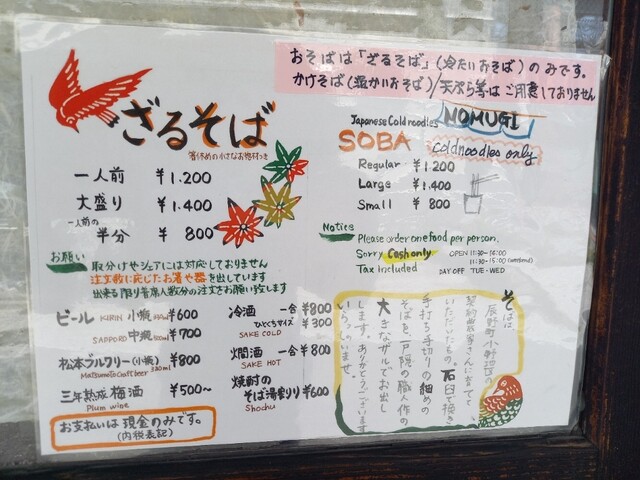 おそばは「ざるそば」(冷たいおそば)のみです。
かけそば(温かいおそば)/天ぷら等はご用意しておりません
ざるそば
箸休めの小さなお惣材つき
一人前 ¥1.200
大盛り ¥1.400
一人前の
半分 ¥ 800
お願い
取分けやシェアには対応しておりません
注文数に応じたお箸や器を出しています
出来る限り着席人数分の注文をお願い致します
ビール KIRIN 小瓶 ¥600
SAPPORO 中瓶 ¥700
松本ブルワリー(小瓶) ¥800
Matsumoto Craft beer 330ml
三年熟成 梅酒 ¥500~
Plum wine
お支払いは現金のみです。
(内税表記)
冷酒 一合 ¥800
ひとくちサイズ ¥300
SAKE COLD
燗酒 一合 ¥800
SAKE HOT
焼酎の
そば湯割り ¥600
Shochu
Japanese Cold noodles NOMUGI
SOBA cold noodles only
Regular ¥1.200
Large ¥1.400
Small ¥ 800
Notice
Please order one food per person.
Sorry Cash only
Tax included
OPEN 11:30-14:00
11:30-15:00
DAY OFF TUE・WED
そばは
辰野町小野地区の
契約農家さんに育てて
いただいたもの。石臼で挽き
手打ち手切りの細めの
そばを、戸隠の職人作の
大きなザルでお出し
します。ありがとうございます
いらっしゃいませ。